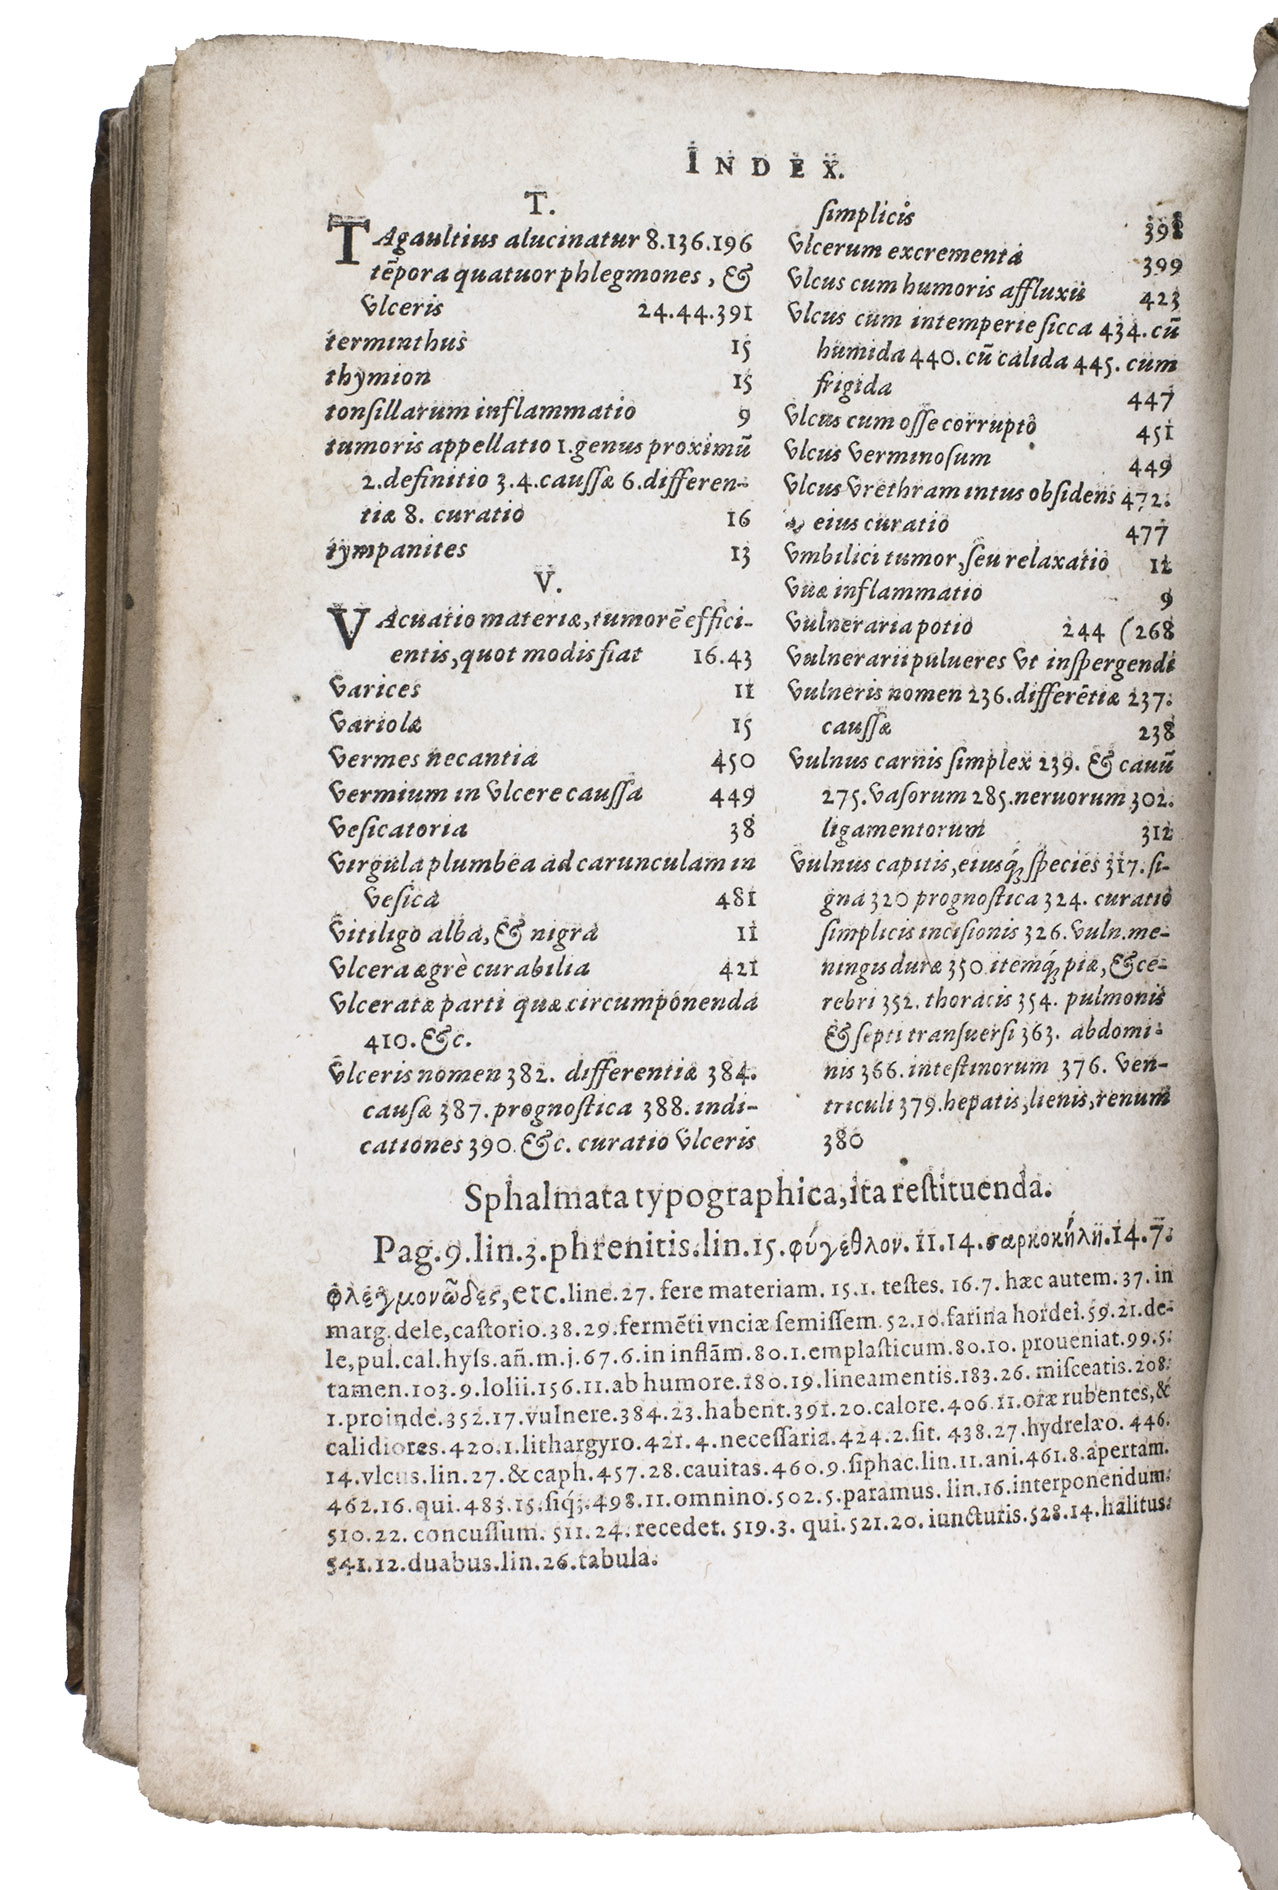 INDEX.
T.
TAgaultius alucinatur 8.136.196
tẽpora quatuor phlegmones, &
vlceris 24.44.391
terminthus 15
thymion 15
tonsillarum inflammatio 9
tumoris appellatio 1. genus proximũ
2. definitio 3.4. caussæ 6. differen-
tiæ 8. curatio 16
tympanites 13
V.
VAcuatio materiæ, tumorẽ effici-
entis, quot modis fiat 16.43
varices 11
variolæ 15
vermes necantia 450
vermium in vlcere caussa 449
vesicatoria 38
virgula plumbea ad carunculam in
vesica 481
vitiligo alba, & nigra 11
vlcera ægrè curabilia 421
vlceratæ parti quæ circumponenda
410. &c.
vlceris nomen 382. differentiæ 384.
causæ 387. prognostica 388. indi-
cationes 390. &c. curatio vlceris
simplicis 391
vlcerum excrementa 399
vlcus cum humoris affluxu 423
vlcus cum intemperie sicca 434. cũ
humida 440. cũ calida 445. cum
frigida 447
vlcus cum osse corrupto 451
vlcus verminosum 449
vlcus vrethram intus obsidens 472.
eius curatio 477
vmbilici tumor, seu relaxatio 12
vuæ inflammatio 9
vulneraria potio 244 (268
vulnerarii pulueres vt inspergendi
vulneris nomen 236. differẽtiæ 237.
caussæ 238
vulnus carnis simplex 239. & cauũ
275. vasorum 285. neruorum 302.
ligamentorum 312
vulnus capitis, eiusq́; species 317. si-
gna 320 prognostica 324. curatio
simplicis incisionis 326. vuln. me-
ningis duræ 350. itemq́; piæ, & ce-
rebri 352. thoracis 354. pulmonis
& septi transuersi 363. abdomi-
nis 366. intestinorum 376. ven-
triculi 379. hepatis, lienis, renum
380
Sphalmata typographica, ita restituenda.
Pag. 9. lin. 3. phrenitis. lin. 15. φύγεθλον. 11.14. σαρκοκήλη. 14.7.
φλεγμονῶδες, etc. line. 27. fere materiam. 15.1. testes. 16.7. hæc autem. 37. in
marg. dele, castorio. 38.29. fermẽti vnciæ semissem. 52.10. farina hordei. 59.21. de-
le, pul. cal. hyss. añ. m. j. 67.6. in inflãm. 80.1. emplasticum. 80.10. proueniat. 99.5.
tamen. 103.9. lolii. 156.11. ab humore. 180.19. lineamentis. 183.26. misceatis. 208.
1. proinde. 352.17. vulnere. 384.23. habent. 391.20. calore. 406.11. oræ rubentes, &
calidiores. 420.1. lithargyro. 421.4. necessaria. 424.2. sit. 438.27. hydrelæo. 446.
14. vlcus. lin. 27. & caph. 457.28. cauitas. 460.9. siphac. lin. 11. ani. 461.8. apertam.
462.16. qui. 483.15. siq́;. 498.11. omnino. 502.5. paramus. lin. 16. interponendum.
510.22. concussum. 511.24. recedet. 519.3. qui. 521.20. iuncturis. 528.14. halitus.
541.12. duabus. lin. 26. tabula.